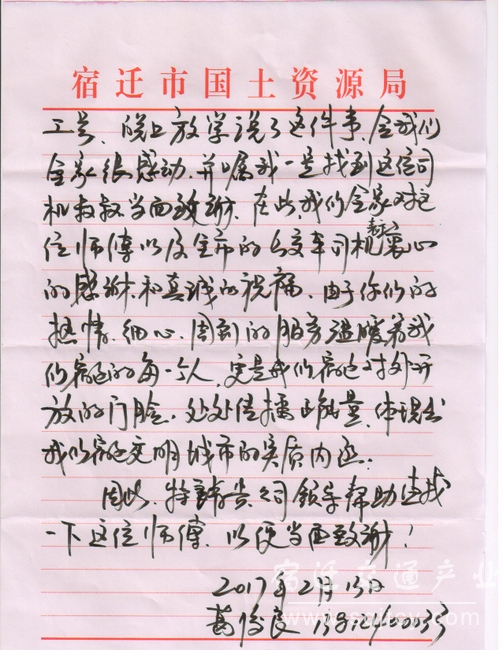 宿迁市国土资源局
工号、晚上放学说了这件事,令我们
全家很感动,并嘱我一定找到这位司
机叔叔当面致谢,在此,我们全家对这
位师傅以及全市的公交车司机表示衷心
的感谢和真诚的祝福,由于你们的
热情、细心、周到的服务温暖着我
们宿迁的每一个人,更是我们宿迁对外开
放的门脸,处处传播正能量,体现出
我们宿迁文明城市的实质内函。
因此,特请贵公司领导帮助查找
一下这位师傅,以便当面致谢!
2017年2月13日
葛俊良
宿迁交通产业